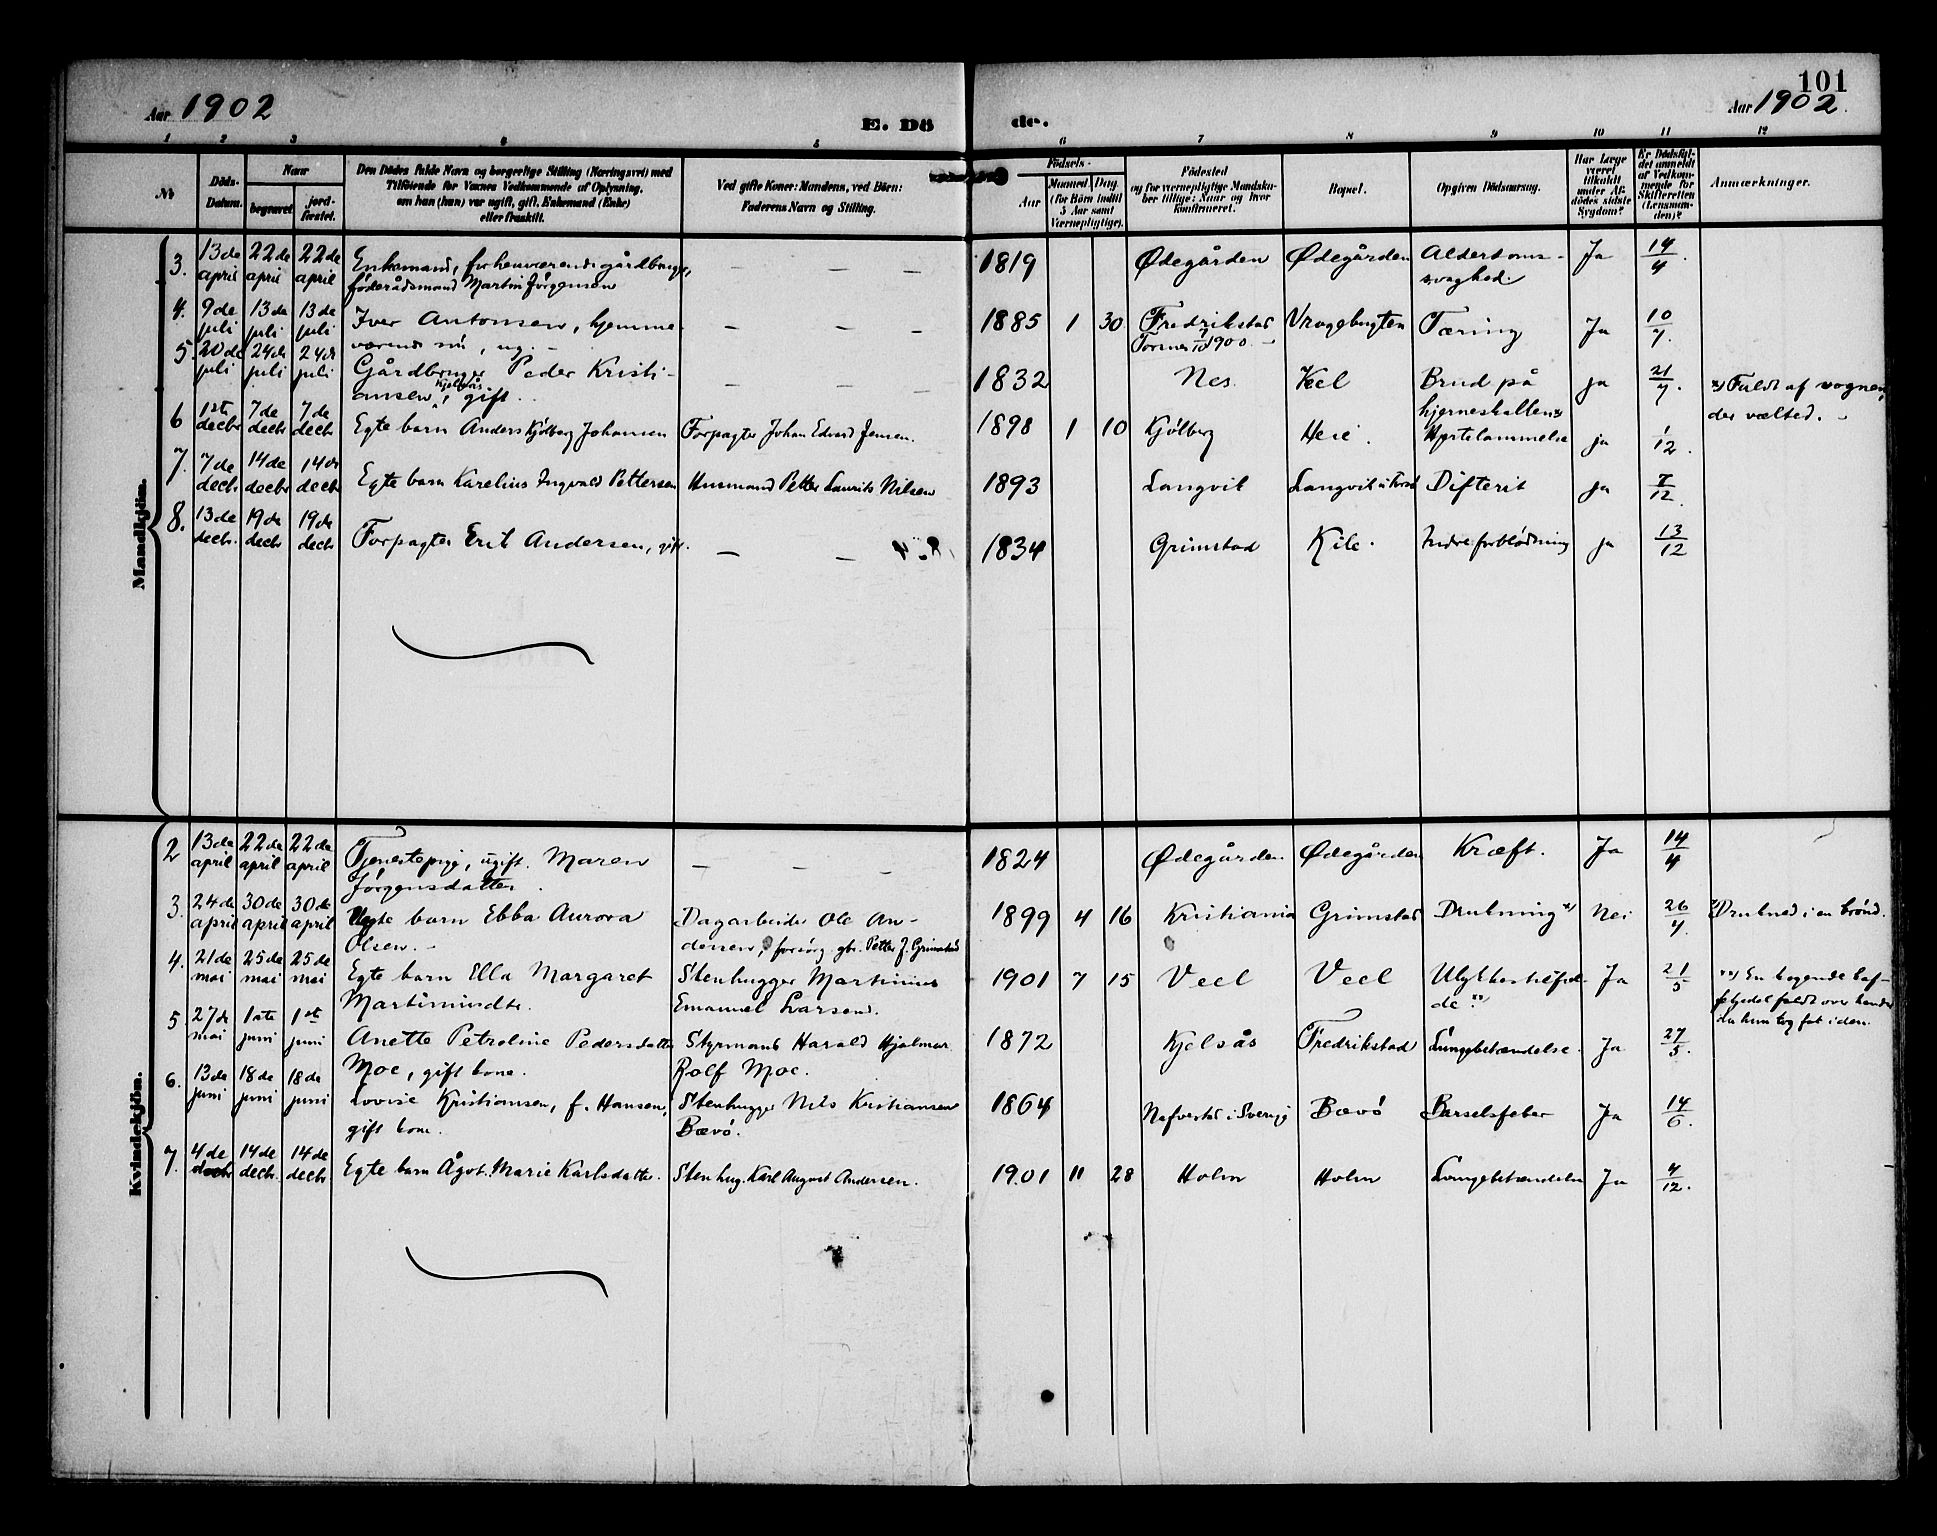 101
Aar 1902
E. Dö
de.
Aar 1902.
1 2 3 4 5 6 7 8 9 10 11 12
№
Döds-Datum.
Naar
begravet
jord-fæstet.
Den Dödes fulde Navn og borgerlige Stilling (Næringsvei) med
Tilföiende for Voxnes Vedkommende af Oplysning,
om han (hun) var ugift, gift, Enkemand (Enke)
eller fraskilt.
Ved gifte Koner: Mandens, ved Börn:
Faderens Navn og Stilling.
Födsels-
Aar
Maaned Dag
(for Börn indtil
5 Aar samt
Værnepligtige).
Födested
og for værnepligtige Mandska-
ber tillige: Naar og hvor
Konfirmeret.
Bopæl.
Opgiven Dödsaarsag.
Har Læge
været
tilkaldt
under Af-
dödes sidste
Sygdom?
Er Dödsfal-
det anmeldt
af Vedkom-
mende for
Skifteretten
(Lensman-
den)?
Anmærkninger.
Mandkjön.
3. 13de april 22de april 22de april Enkemand, forhenværende gårdbruger, föderådsmand Martin Jörgensen — — — 1819 Ødegården Ødegården Alderdoms-svaghed. Ja 14/4.
4. 9de juli 13de juli 13de juli Iver Antonsen, hjemmeværende sön, ug. — — — 1885 1 30 Fredrikstad Vragebugten Tæring Ja 10/7.
5. 20de juli 24de juli 24de juli Gårdbruger Peder Kristiansen Kjelsås, gift. — — — 1832 Nes Keel Brud på hjerneskallen x) ja 21/7. x) Faldt af vognen, der vælted. —
6 1ste decbr 7de decbr 7de decbr Egte barn Anders Kjölberg Johansen Forpagter Johan Edvard Jensen. 1898 1 10 Kjölberg Heie. Hjertelammelse ja 1/12.
7. 7de decbr 14de decbr 14de decbr Egte barn Karelius Ingvald Pettersen Husmand Petter Laurits Nilsen 1893 Langvik Langvik Difterit ja 8/12.
8. 13de decbr. 19de decbr 19de decbr Forpagter Erik Andersen, gift. — — 1834 Grimstad Kile. Indre forblødning ja 13/12
Kvindekjön.
2 13de april 22de april 22de april Tjenestepige, ugift. Maren Jörgensdatter. — — — 1824 Ødegården Ødegården Kræft. Ja 14/4
3. 24de april 30de april 30de april Uegte barn Ebba Aurora Olsen. — Dagarbeider Ole Andersen, forsörg. gbr. Petter J. Grimstad 1899 4 16 Kristiania Grimstad Drukning x) Nei 26/4. x) Drukned i en brönd.
4. 21de mai 25de mai 25de mai Egte barn Ella Margaret Martinusdtr. Stenhugger Martinius Emanuel Larsen. 1901 7 15 Veel Veel Ulykkestilfælde xx) Ja 21/5 xx) En kogende kaf-fekjedel faldt over hende da hun tog fat i den.
5 27de mai 1ste juni 1ste juni Anette Petroline Pedersdatter Moe, gift kone. Styrmand Harald Hjalmar Rolf Moe. 1872 Kjelsås Fredrikstad Lungebetændelse. Ja 27/5.
6. 13de juni 18de juni 18de juni Lovise Kristiansen, f. Hansen, gift kone. Stenhugger Nils Kristiansen Bævö. 1864 i Sverige Bævö Barselsfeber Ja 14/6.
7. 4de decbr 14de decbr. 14de decbr Egte barn Ågot Marie Karlsdatter. Stenhug. Karl August Andersen. 1901 11 28 Holm Holm Lungebetændelse Ja 4/12.